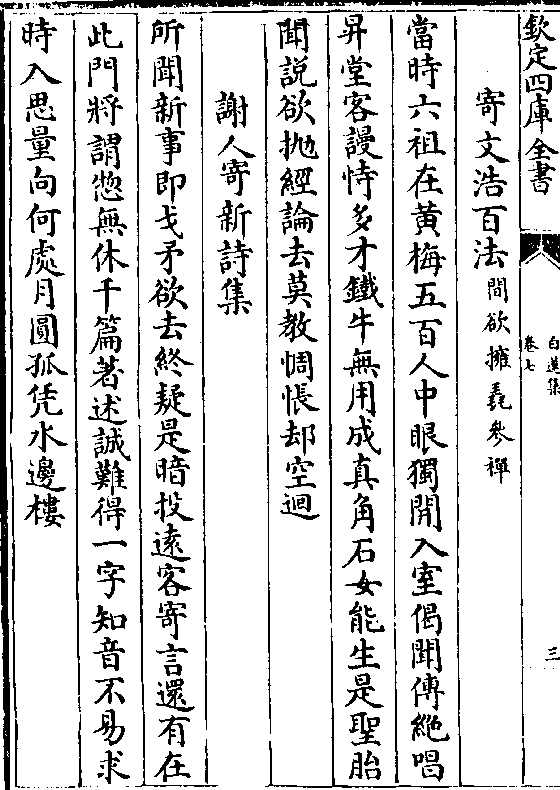 欽定四庫全書
白蓮集
卷七
三
寄文浩百法間欲擁毳參禪
當時六祖在黃梅五百人中眼獨開入室偈聞傳絶唱
昇堂客謾恃多才鐵牛無用成真角石女能生是聖胎
聞說欲抛經論去莫教惆悵却空迴
謝人寄新詩集
所聞新事即戈矛欲去終疑是暗投逺客寄言還有在
此門將謂惣無休千篇著述誠難得一字知音不易求
時入思量向何處月圓孤凭水邊樓